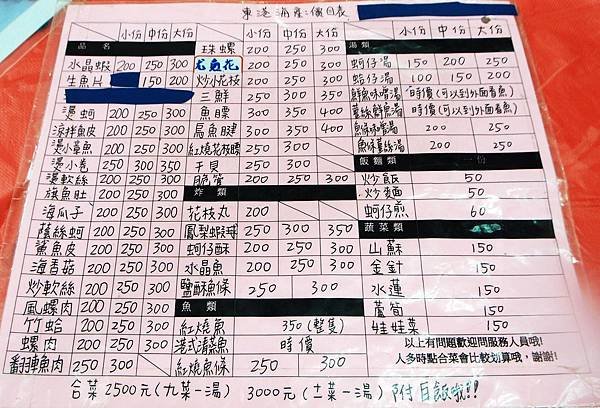 東港海產:價目表
品名 小份 中份 大份
水晶蝦 200 250 300
生魚片 150 200
燙蚵 200 250 300
涼拌魚皮 200 250 300
燙小章魚 200 250 300
燙小卷 250 300 350
燙軟絲 200 250 300
旗魚肚 200 250 300
海瓜子 200 250 300
蔭絲蚵 200 250 300
鯊魚皮 200 250 300
海香菇 200 250 300
炒軟絲 200 250 300
風螺肉 200 250 300
竹蛤 200 250 300
螺肉 200 250 300
翻車魚肉 250 300
小份 中份 大份
珠螺 200 250 300
龙魚花 200 250 300
炒小花枝 200 250 300
三鮮 250 300 350
魚瞟 300 350 400
扁魚腱 300 350 400
紅燒花枝膘 250 300
干貝 250 300
脆管 200 250 300
炸類
花枝丸 200
鳳梨蝦球 250 300 350
蚵仔酥 200 250 300
水晶魚 200 250 300
鹽酥魚條 250 300
魚類
紅燒魚 350(整隻)
港式清蒸魚 時價
紅燒魚條 250 300
湯類 小份 中份 大份
蚵仔湯 150 200 250
蛤仔湯 100 150 200
鮮魚味噌湯 時價(可以到外面看魚)
薑絲鮮魚湯 時價(可以到外面看魚)
魚條味噌湯 200 250
魚條薑絲湯 200 250
飯麵類 一份
炒飯 50
炒麵 50
蚵仔煎 60
蔬菜類
山蘇 150
金針 150
水蓮 150
蘆筍 150
娃娃菜 150
以上有問題歡迎問服務人員哦!
人多時點合菜會比較划算哦,謝謝!
合菜2500元(九菜一湯) 3000元(十一菜一湯) 附白飯哦!!